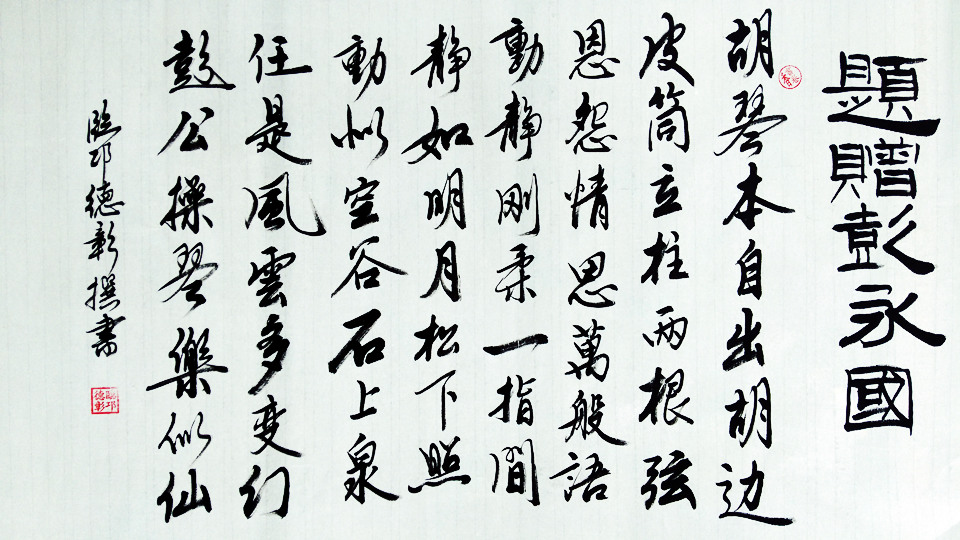 題贈彭永國
胡琴本自出胡边
皮筒立柱兩根弦
恩怨情思萬般語
動静刚柔一指間
静如明月松下照
動似空谷石上泉
任是風雲多变幻
彭公操琴樂似仙
臨邛德彰撰書
臨邛德彰